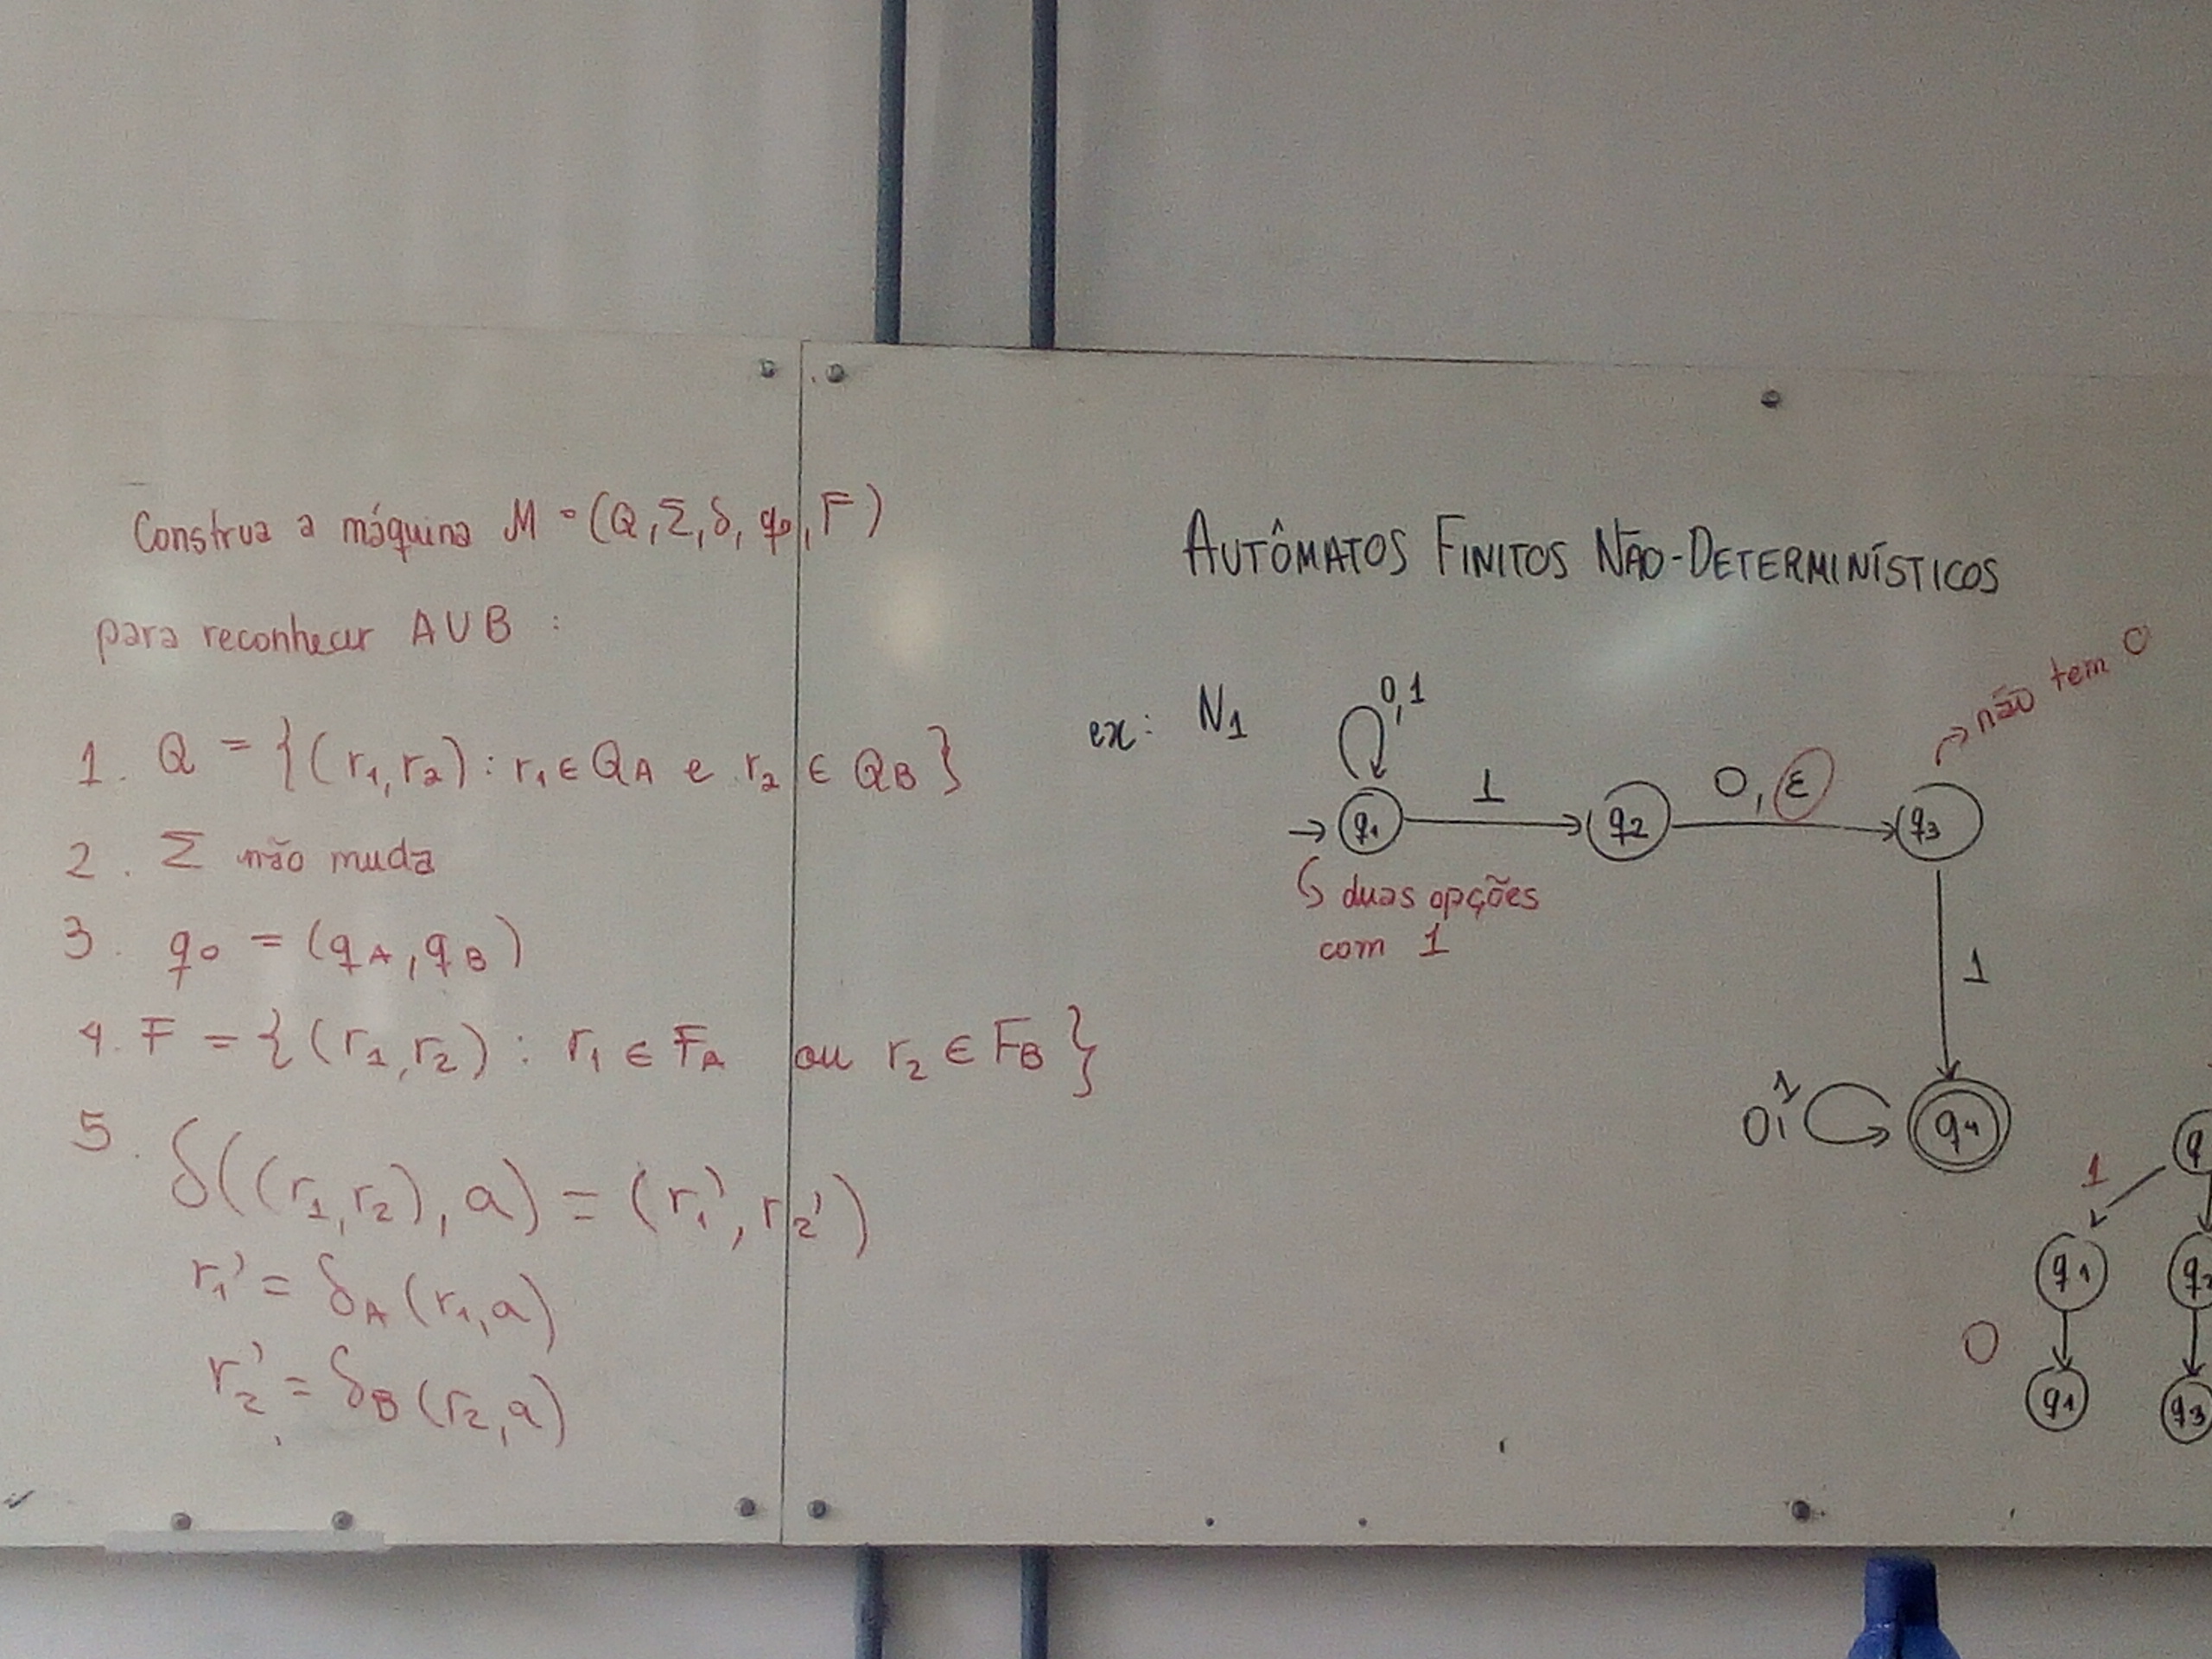 Construa a máquina M = (Q, Σ, δ, q0, F)
para reconhecer A∪B :
1. Q = {(r1, r2) : r1 ∈ QA e r2 ∈ QB}
2. Σ não muda
3. q0 = (qA, qB)
4. F = {(r1, r2) : r1 ∈ FA ou r2 ∈ FB}
5. δ((r1, r2), a) = (r1', r2')
r1' = δA (r1, a)
r2' = δB (r2, a)
AUTÔMATOS FINITOS NÃO-DETERMINÍSTICOS
ex: N1
0,1
não tem 0
q1 1 q2 0, ε q3
duas opções
com 1
1
0,1 q4
q
1
q1 q2
0
q1 q3